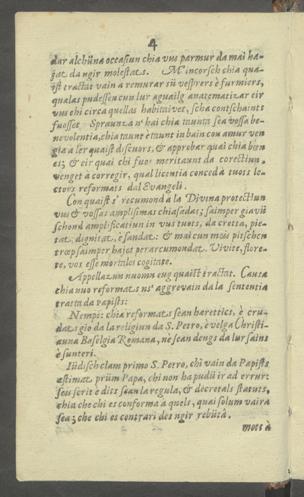 4
dar alchüna occasiun chia vus parmur da mai ha-
jat da ngir molestats. M'incorsch chia qua-
ist tractat vain a remurar sü vesprers è furmiers,
qualas pudessen cun lur aguailg anatematizar eir
vus chi circa quellas habitaivet, scha contschaints
fuosset. Spraunza n' hai chia taunta sea vossa be-
nevolentia, chia taunt è taunt in bain cou amur ven
gia à ler quaist discuors, & approbar quai chia bœn
es; & eir quai chi fuos meritaunt da corectiun,
venget à corregir, qual licentia conced à tuots le-
ctors reformats dal Evangeli.
Con quaist s' recumond à la Divina protectiun
vus & vossas amplisimas chiasadas; saimper giavü
schond amplificatiun in vus tuots, da cretta, pie-
tat, dignitat, è sandat: & mai cun moi pitschen
trœp saimper hajet perarcumondat. Vivite, flore-
te, vos esse mortales cogitate.
Appellaziun nuomn eug quaist tractat. Causa
chia nuo reformats ns' aggrevain da la sententia
tratta da vapists:
Nempi: chia reformats sean harettics, è cru-
dats gio da la religiun da S. Petro, è velga Christi-
auna Baselgia Romana, nè sean dengs da lur sains
è sunteri.
Iüdisch clam primo S. Petro, chi vain da Papists
æstimat prüm Papa, chi non ha pudü ir ad errur:
seis scrit è dits sean la regula, & decretals statuts,
chia che chi es conforma à quels, quai solum vaira
sea; che chi es contrari des ngir rebütà.
mots à